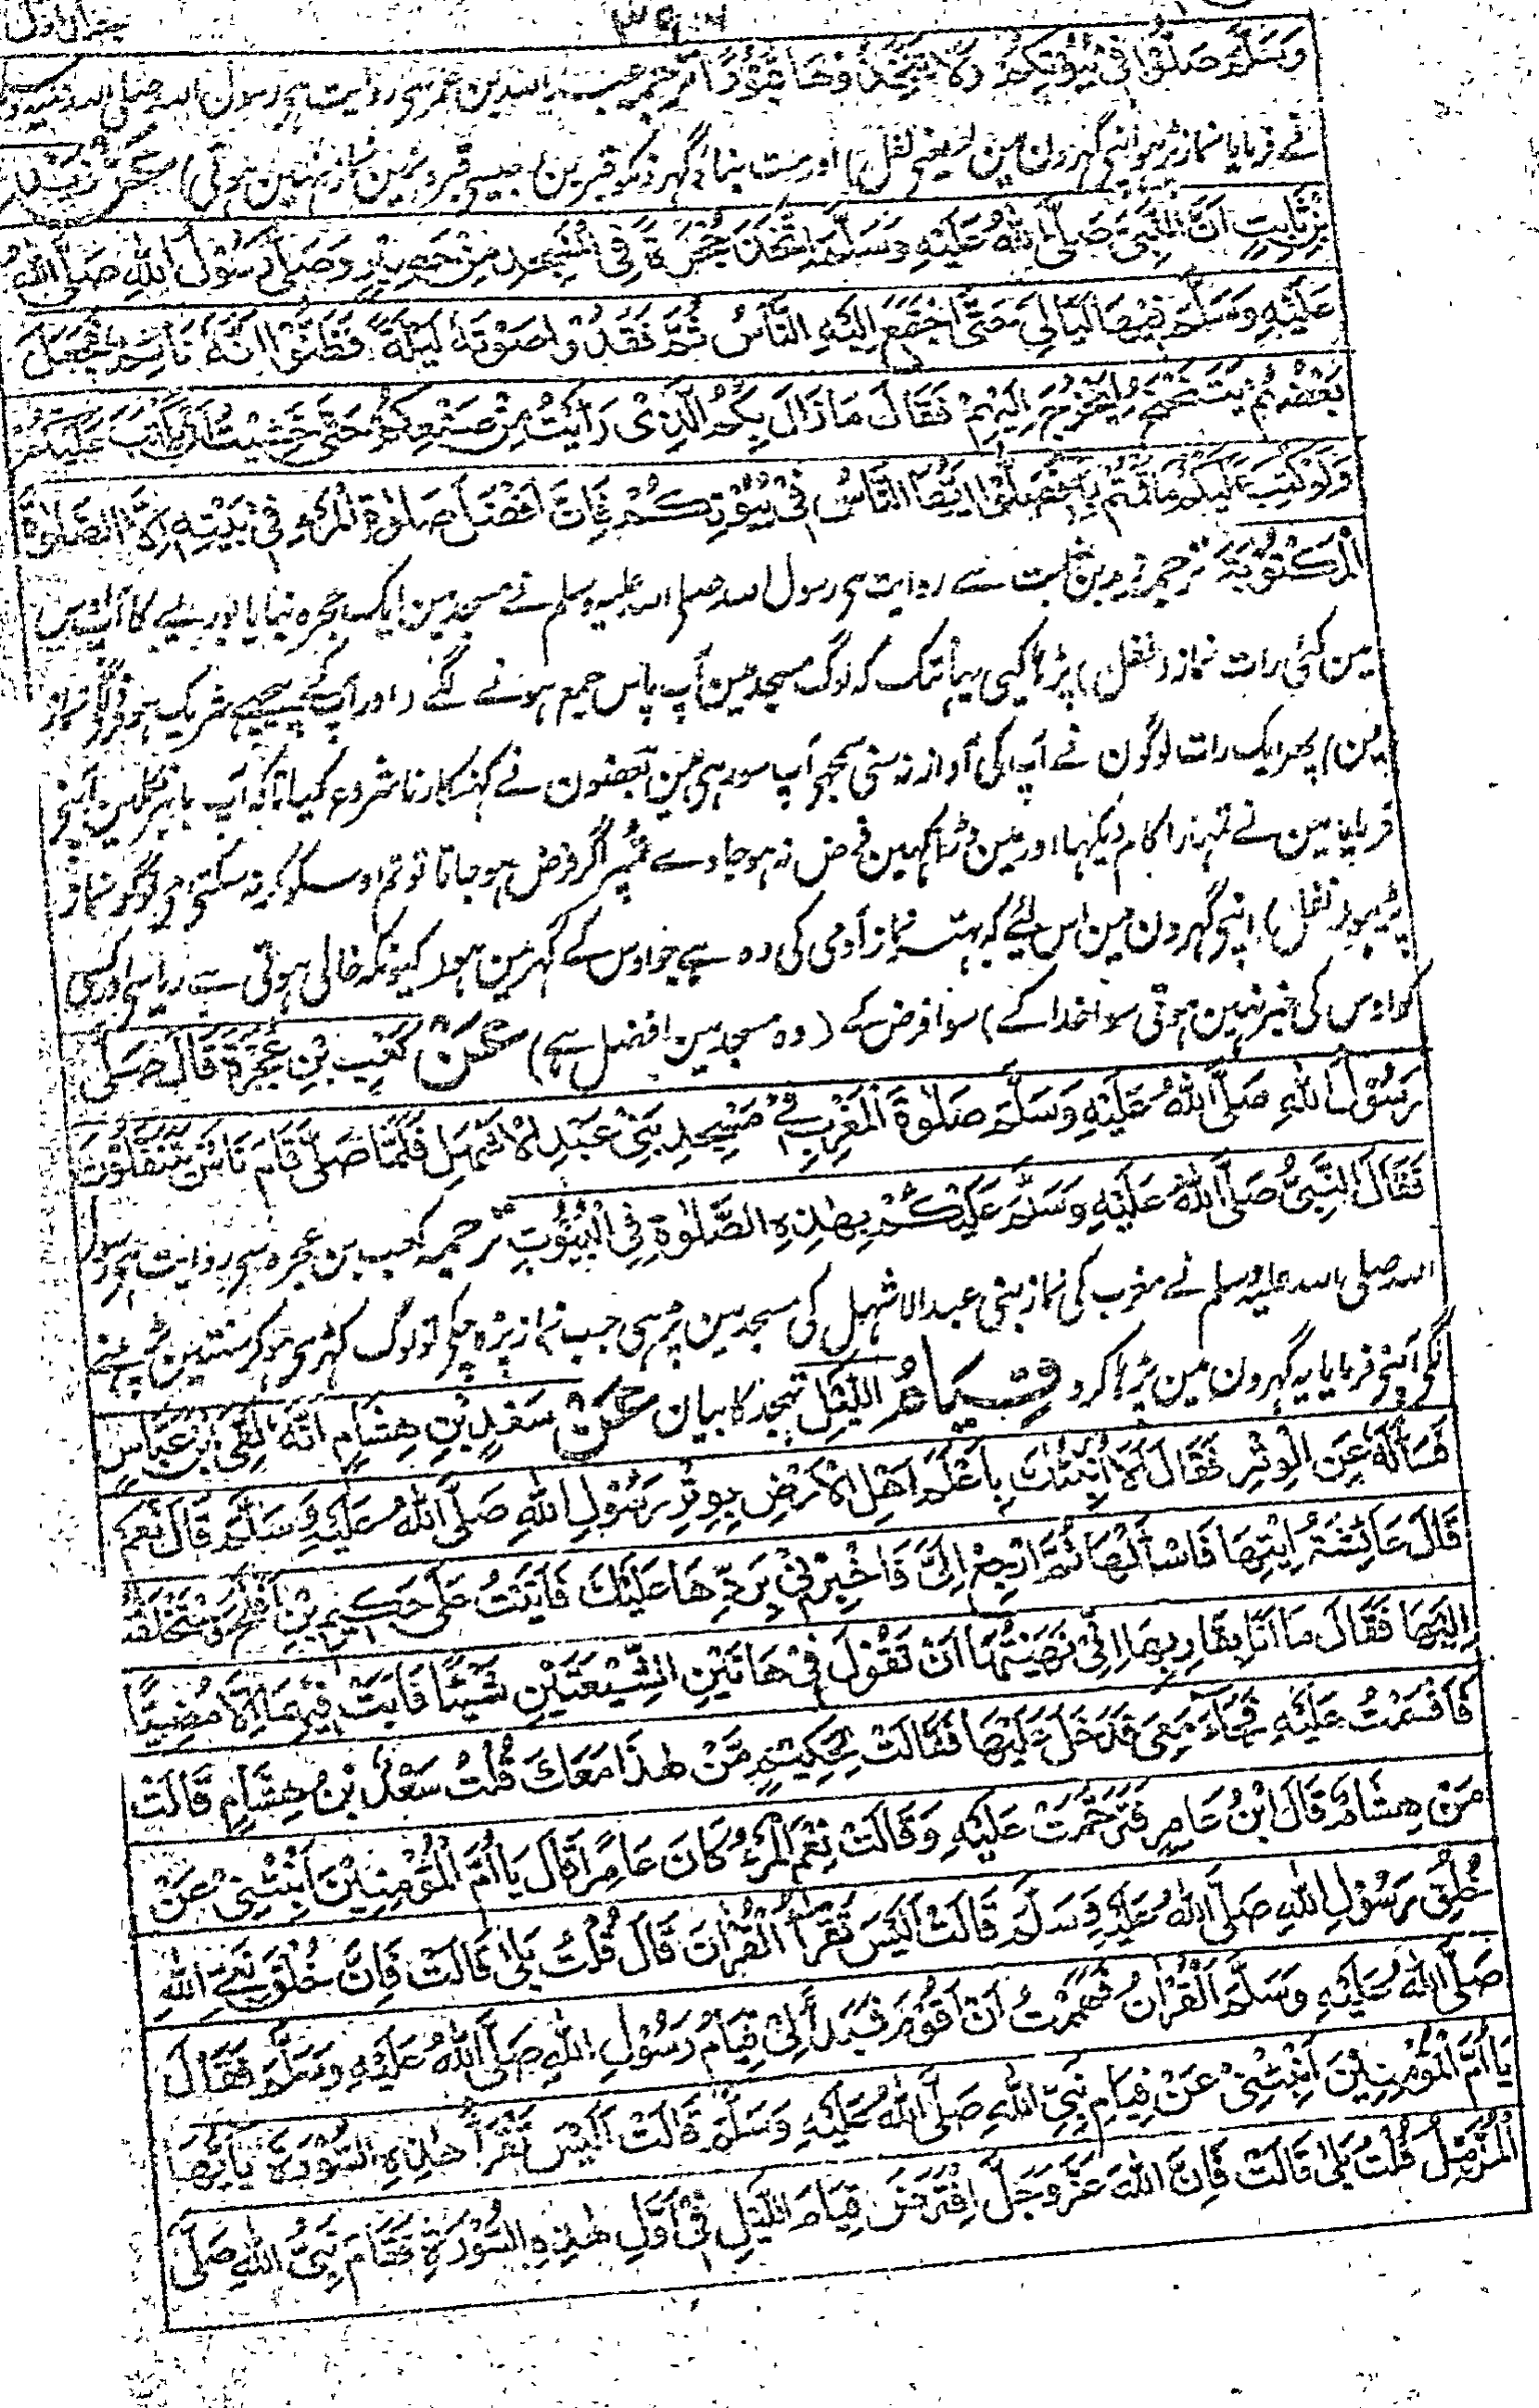 وَسَلَّمَ صَلُّوْا فِیْ بُیُوْتِكُمْ وَلَا تَتَّخِذُوْهَا قُبُوْرًا ترجمہ عبد اللہ بن عمر سی روایت ہی رسول اللہ صلی اللہ علیہ وسلم
نے فرمایا نماز پڑہو اپنی گہرون مین (یعنی نفل) اور مت بناؤ گہرونکو قبرین (جیسی قبرونمین نماز نہین ہوتی) عَنْ زَیْدِ
بْنِ ثَابِتٍ اَنَّ النَّبِیَّ صَلَّی اللّٰهُ عَلَیْهِ وَسَلَّمَ اتَّخَذَ حُجْرَةً فِی الْمَسْجِدِ مِنْ حَصِیْرٍ وَصَلّٰی رَسُوْلُ اللّٰهِ صَلَّی اللّٰهُ
عَلَیْهِ وَسَلَّمَ فِیْهَا لَیَالِیَ حَتَّی اجْتَمَعَ اِلَیْهِ النَّاسُ ثُمَّ فَقَدُوْا صَوْتَهٗ لَیْلَةً فَظَنُّوْا اَنَّهٗ نَائِمٌ فَجَعَلَ
بَعْضُهُمْ یَتَنَحْنَحُ لِیَخْرُجَ اِلَیْهِمْ فَقَالَ مَا زَالَ بِكُمُ الَّذِیْ رَاَیْتُ مِنْ صَنْعِكُمْ حَتّٰی خَشِیْتُ اَنْ یُّكْتَبَ عَلَیْكُمْ
وَلَوْ كُتِبَ عَلَیْكُمْ مَا قُمْتُمْ بِهٖ فَصَلُّوْا اَیُّهَا النَّاسُ فِیْ بُیُوْتِكُمْ فَاِنَّ اَفْضَلَ صَلٰوةِ الْمَرْءِ فِیْ بَیْتِهٖ اِلَّا الصَّلٰوةَ
الْمَكْتُوْبَةَ ترجمہ زید بن ثابت سے روایت ہی رسول اللہ صلی اللہ علیہ وسلم نے مسجد مین ایک حجرہ بنایا بوریے کا آپ اس
مین کئی رات نماز (نفل) پڑہا کیی یہانتک کہ لوگ مسجد مین آپ پاس جمع ہونے لگے (اور آپکے پیچھے شریک ہو گئے نماز
مین) پھر ایک رات لوگون نے آپ کی آواز نہ سنی سمجھے آپ سو رہی ہین بعضون نے کہنکارنا شروع کیا تاکہ آپ باہر نکلین آپنی
فرمایا مین نے تمہارا کام دیکہا اور مین ڈرا کہین فرض نہ ہو جاوے تمپر اگر فرض ہو جاتا تو تم اوسکو کر نہ سکتی تو لوگو نماز
پڑہو (نفل) اپنی گہرون مین اس لئے کہ بہتر نماز آدمی کی وہ ہے جو اوس کے گہر مین ہو (کیونکہ خالی ہوتی ہے ریا سی اور کسی
کو اوس کی خبر نہین ہوتی سوا خدا کے) سوا فرض کے (وہ مسجد مین افضل ہے) عَنْ كَعْبِ بْنِ عُجْرَةَ قَالَ صَلّٰی
رَسُوْلُ اللّٰهِ صَلَّی اللّٰهُ عَلَیْهِ وَسَلَّمَ صَلٰوةَ الْمَغْرِبِ فِیْ مَسْجِدِ بَنِیْ عَبْدِ الْاَشْهَلِ فَلَمَّا صَلّٰی قَامَ نَاسٌ یَتَنَفَّلُوْنَ
فَقَالَ النَّبِیُّ صَلَّی اللّٰهُ عَلَیْهِ وَسَلَّمَ عَلَیْكُمْ بِهٰذِهِ الصَّلٰوةِ فِی الْبُیُوْتِ ترجمہ کعب بن عجرہ سی روایت ہی رسول
اللہ صلی اللہ علیہ وسلم نے مغرب کی نماز بنی عبد الاشہل کی مسجد مین پڑہی جب نماز پڑہ چکی تو لوگ کہڑی ہو کر سنتین پڑہنے
لگی آپنی فرمایا یہ گہرون مین پڑہا کرو قِیَامُ اللَّیْلِ تہجد کا بیان عَنْ سَعْدِ بْنِ هِشَامٍ اَنَّهٗ لَقِیَ ابْنَ عَبَّاسٍ
فَسَاَلَهٗ عَنِ الْوِتْرِ فَقَالَ اَلَا اُنَبِّئُكَ بِاَعْلَمِ اَهْلِ الْاَرْضِ بِوِتْرِ رَسُوْلِ اللّٰهِ صَلَّی اللّٰهُ عَلَیْهِ وَسَلَّمَ قَالَ نَعَمْ
قَالَ عَائِشَةُ اِئْتِهَا فَاسْاَلْهَا ثُمَّ ارْجِعْ اِلَیَّ فَاَخْبِرْنِیْ بِرَدِّهَا عَلَیْكَ فَاَتَیْتُ عَلٰی حَكِیْمِ بْنِ اَفْلَحَ فَاسْتَلْحَقْتُهٗ
اِلَیْهَا فَقَالَ مَا اَنَا بِقَارِبِهَا اِنِّیْ نَهَیْتُهَا اَنْ تَقُوْلَ فِیْ هَاتَیْنِ الشِّیْعَتَیْنِ شَیْئًا فَاَبَتْ فِیْهِمَا اِلَّا مُضِیًّا
فَاَقْسَمْتُ عَلَیْهِ فَجَآءَ مَعِیَ فَدَخَلَ عَلَیْهَا فَقَالَتْ لِحَكِیْمٍ مَّنْ هٰذَا مَعَكَ قُلْتُ سَعْدُ بْنُ هِشَامٍ قَالَتْ
مَنْ هِشَامٌ قَالَ ابْنُ عَامِرٍ فَتَرَحَّمَتْ عَلَیْهِ وَقَالَتْ نِعْمَ الْمَرْءُ كَانَ عَامِرًا قَالَ یَا اُمَّ الْمُؤْمِنِیْنَ اَنْبِئِیْنِیْ عَنْ
خُلُقِ رَسُوْلِ اللّٰهِ صَلَّی اللّٰهُ عَلَیْهِ وَسَلَّمَ قَالَتْ اَلَیْسَ تَقْرَاُ الْقُرْاٰنَ قَالَ قُلْتُ بَلٰی قَالَتْ فَاِنَّ خُلُقَ نَبِیِّ اللّٰهِ
صَلَّی اللّٰهُ عَلَیْهِ وَسَلَّمَ الْقُرْاٰنُ فَهَمَمْتُ اَنْ اَقُوْمَ فَبَدَاَ لِیْ قِیَامُ رَسُوْلِ اللّٰهِ صَلَّی اللّٰهُ عَلَیْهِ وَسَلَّمَ فَقَالَ
یَا اُمَّ الْمُؤْمِنِیْنَ اَنْبِئِیْنِیْ عَنْ قِیَامِ نَبِیِّ اللّٰهِ صَلَّی اللّٰهُ عَلَیْهِ وَسَلَّمَ قَالَتْ اَلَیْسَ تَقْرَاُ هٰذِهِ السُّوْرَةَ یٰاَیُّهَا
الْمُزَّمِّلُ قُلْتُ بَلٰی قَالَتْ فَاِنَّ اللّٰهَ عَزَّ وَجَلَّ افْتَرَضَ قِیَامَ اللَّیْلِ فِیْ اَوَّلِ هٰذِهِ السُّوْرَةِ فَقَامَ نَبِیُّ اللّٰهِ صَلَّی